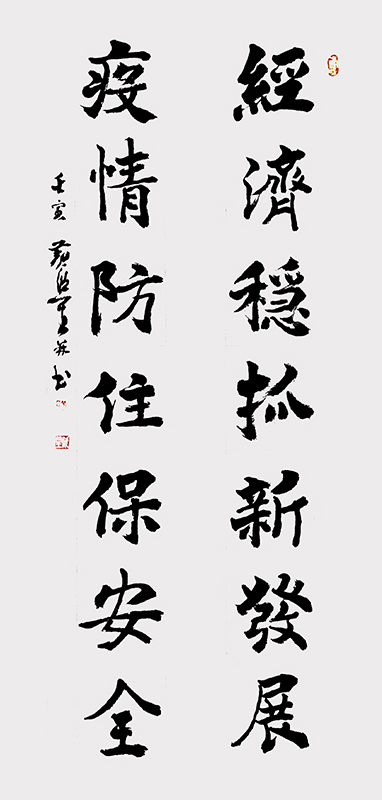 經濟穩抓新發展
疫情防住保安全
壬寅 書